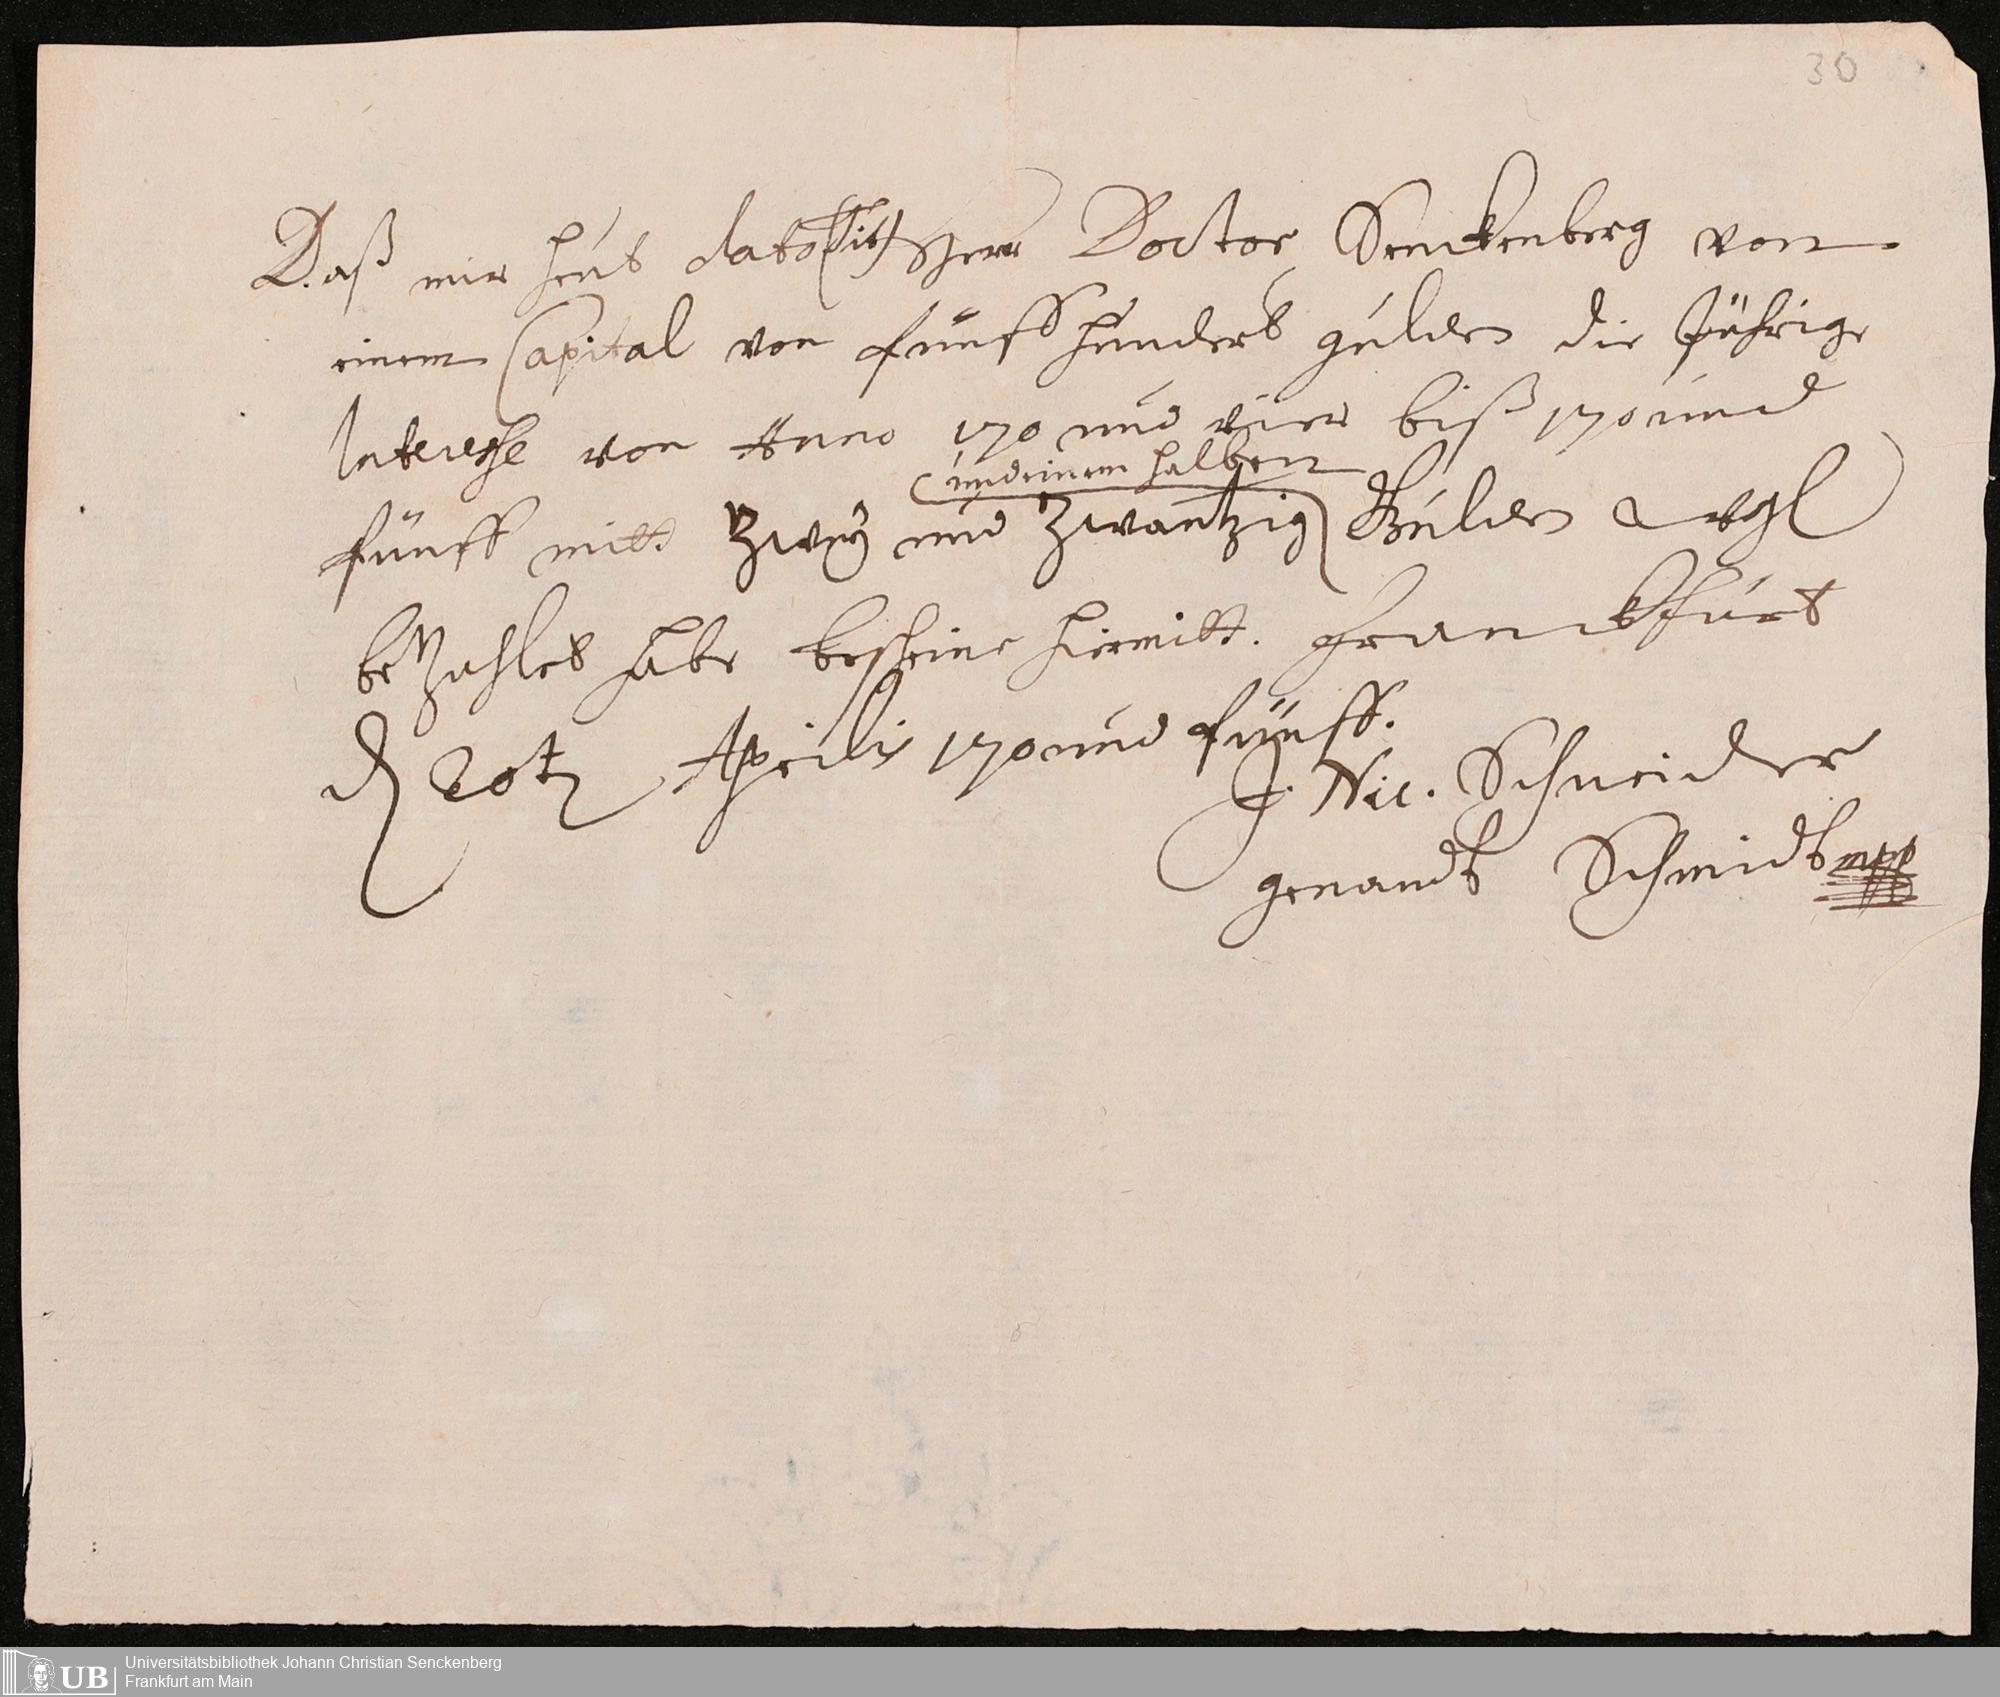 30
Daß mir heut dato (Tit) Herr Doctor Senckenberg von
einem Capital von fünff hundert gulden die Jährige
Interesse von Anno 170 und vier biß 170 und
und einem halben
fünff mitt Zwey und Zwantzig Gulden
bezahlet habe bescheine hiermitt. Franckfurt
d 20t Aprilis 170 und fünff.
J. Nic. Schneider
genandt Schmidt mpp
UB
Universitätsbibliothek Johann Christian Senckenberg
Frankfurt am Main